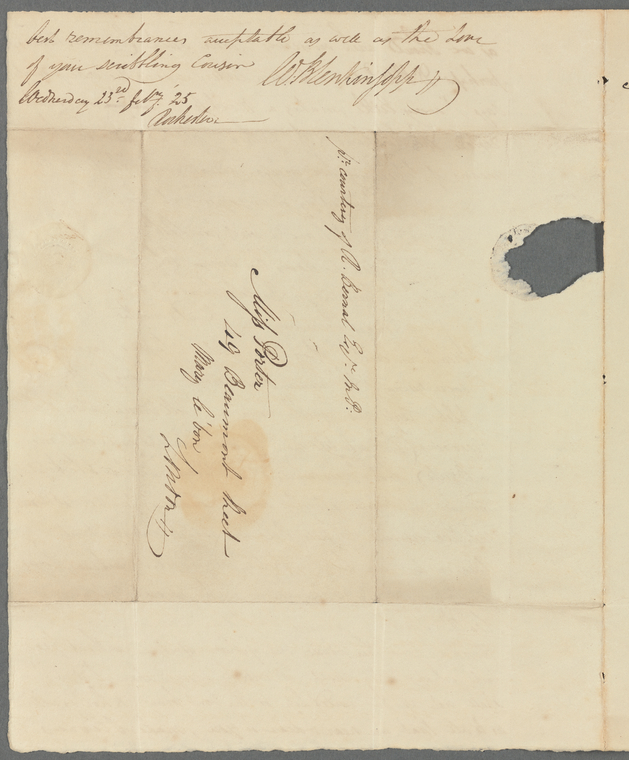 best remembrances acceptable as well as the Love
of your scribbling Cousin W Blenkinsopp
Wednesday 23rd feby 25
Rochester
pr. courtesy of R. Bernal Esqr. M.P.
Miss Porter
49 Beaumont Street
Mary le bon
London